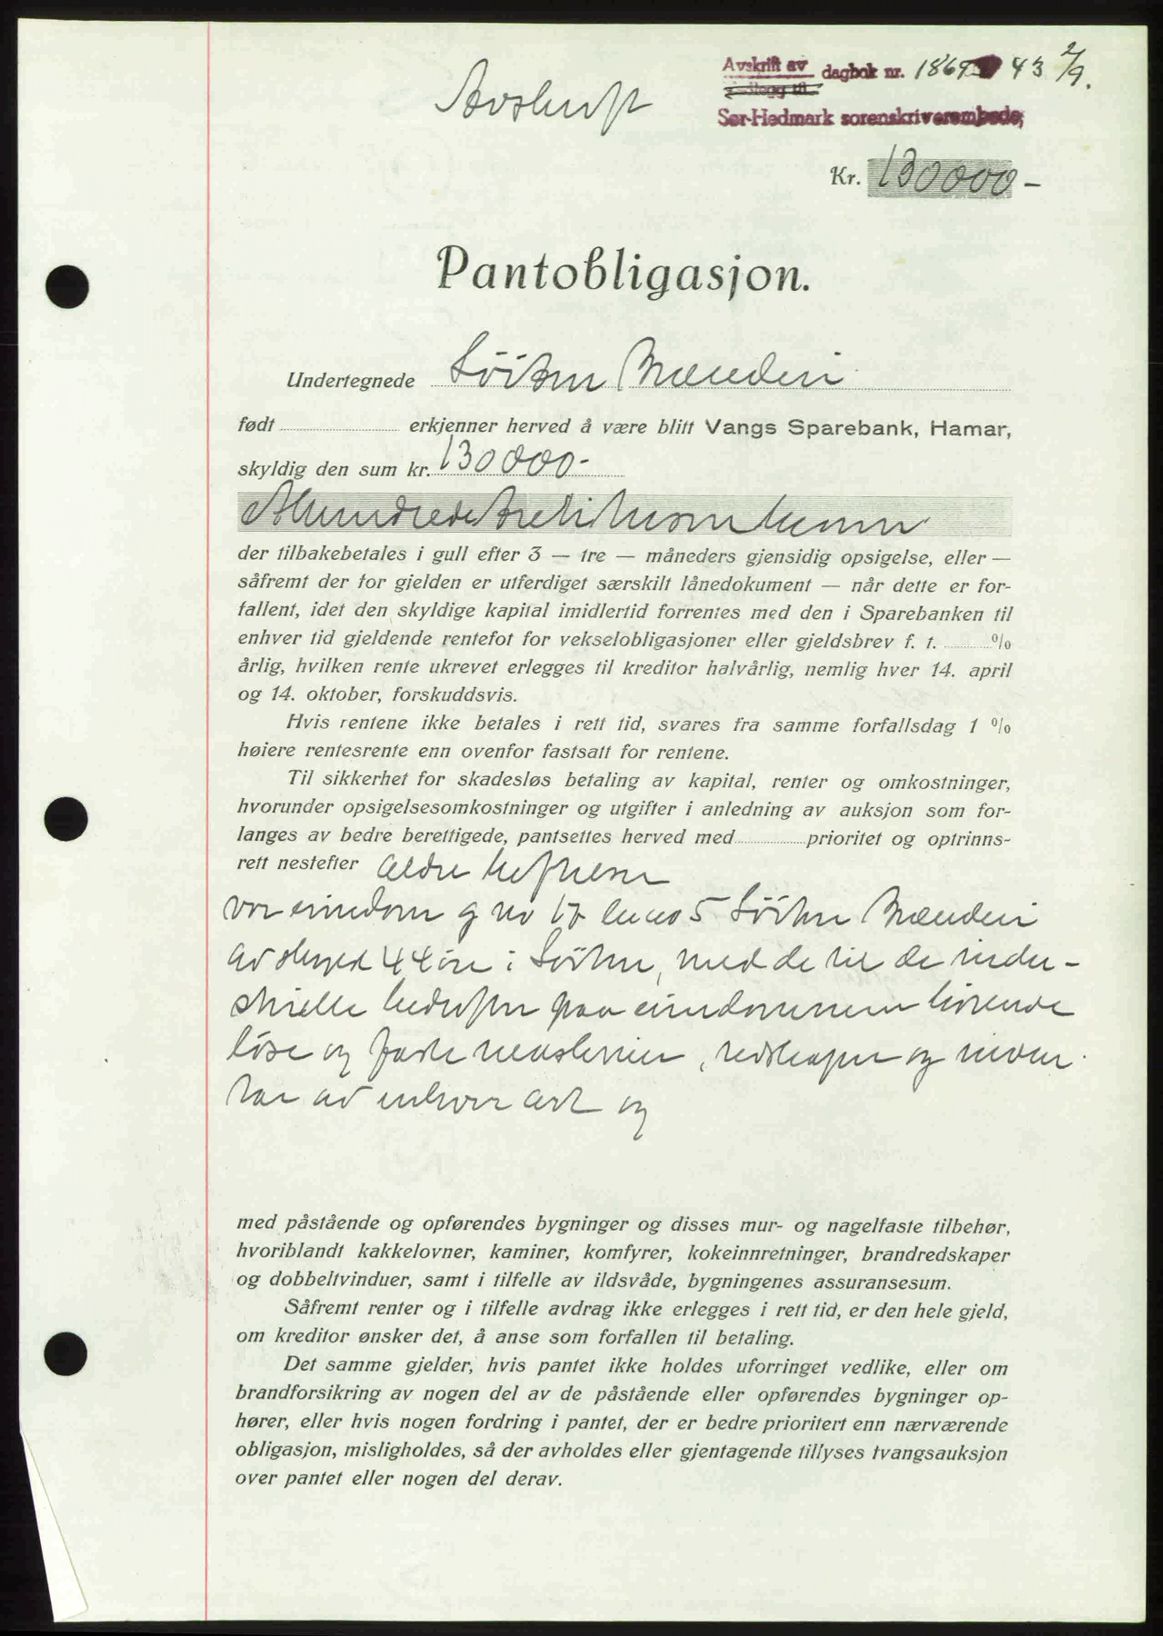 Avskrift
Avskrift av dagbok nr. 1869 43 2/9.
Sør-Hedmark sorenskriverembede,
Kr. 130000 -
Pantobligasjon.
Undertegnede
født erkjenner herved å være blitt Vangs Sparebank, Hamar,
skyldig den sum kr. 130000-
der tilbakebetales i gull efter 3 — tre — måneders gjensidig opsigelse, eller —
såfremt der for gjelden er utferdiget særskilt lånedokument — når dette er for-
fallent, idet den skyldige kapital imidlertid forrentes med den i Sparebanken til
enhver tid gjeldende rentefot for vekselobligasjoner eller gjeldsbrev f. t. %
årlig, hvilken rente ukrevet erlegges til kreditor halvårlig, nemlig hver 14. april
og 14. oktober, forskuddsvis.
Hvis rentene ikke betales i rett tid, svares fra samme forfallsdag 1 %
høiere rentesrente enn ovenfor fastsatt for rentene.
Til sikkerhet for skadesløs betaling av kapital, renter og omkostninger,
hvorunder opsigelsesomkostninger og utgifter i anledning av auksjon som for-
langes av bedre berettigede, pantsettes herved med prioritet og optrinns-
rett nestefter ældre heftelser
vor eiendom g no 17 br no 5
av skyld 44 øre i med de til de indu-
strielle bedrifter paa eiendommen hørende
løse og faste maskiner, redskaper og inven-
tar av enhver art og
med påstående og opførendes bygninger og disses mur- og nagelfaste tilbehør,
hvoriblandt kakkelovner, kaminer, komfyrer, kokeinnretninger, brandredskaper
og dobbeltvinduer, samt i tilfelle av ildsvåde, bygningenes assuransesum.
Såfremt renter og i tilfelle avdrag ikke erlegges i rett tid, er den hele gjeld,
om kreditor ønsker det, å anse som forfallen til betaling.
Det samme gjelder, hvis pantet ikke holdes uforringet vedlike, eller om
brandforsikring av nogen del av de påstående eller opførendes bygninger op-
hører, eller hvis nogen fordring i pantet, der er bedre prioritert enn nærværende
obligasjon, misligholdes, så der avholdes eller gjentagende tillyses tvangsauksjon
over pantet eller nogen del derav.